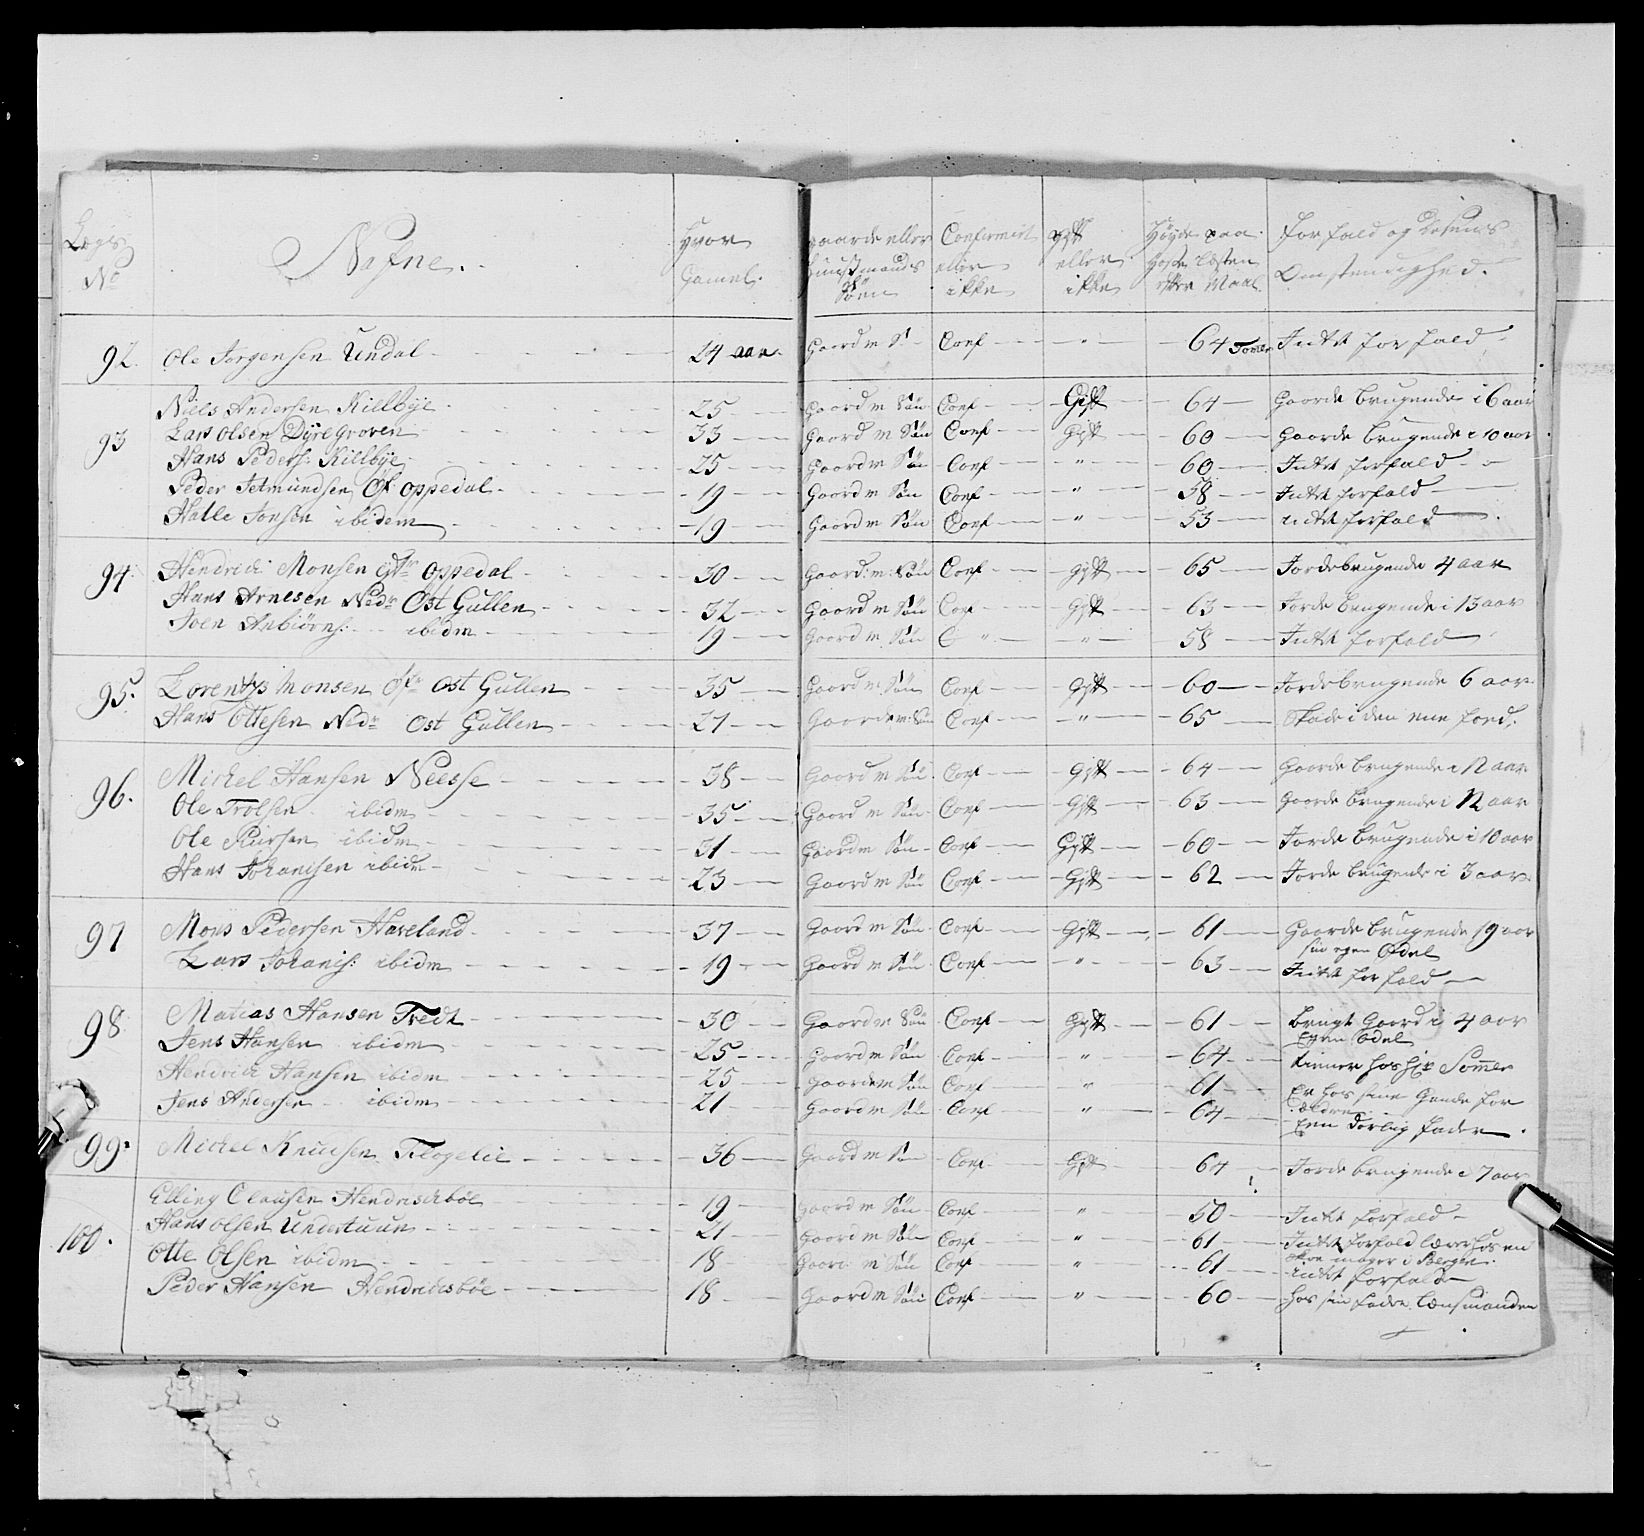 Legs No | Nafne. | Hvor Gamel. | Gaarde eller Huusmands Søn | Confirmert eller ikke | Gift eller ikke | Høyde paa Foste Læsten eller Maal | Forfald og Omstendighed.
92 | Ole Jørgensen Undal | 24 aar | Gaard M S | Conf | " | 64 Tomer | Intet forfald
Niels Andersen Killbye | 25 | Gaard M Søn | Conf | Gift | 64 | Gaarde brugende i 6 aar
93 | Lars Olsen Dyregroven | 33 | Gaard M Søn | Conf | Gift | 60 | Gaarde brugende i 10 aar
Hans Peders: Killbye | 25 | Gaard M Søn | Conf | " | 60 | Intet forfald
Peder Jetmundsen Øf: Oppedal | 19 | Gaard M Søn | Conf | " | 58 | Intet forfald
Halle Jonsen ibidem | 19 | Gaard M Søn | Conf | " | 53 | intet forfald
94 | Hendrich Monsen Oppedal | 30 | Gaard: M: Søn | Conf | Gift | 65 | Jordebrugende 4 aar
Hans Arnesen Nedr Ost Gullen | 32 | Gaard M Søn | Con | Gift | 63 | Jorde brugende i 13 aar
Joen Anbiørns: ibidm | 19 | Gaard M Søn | C " | " | 58 | Intet forfald
95. | Lorentz Monsen Øfr Ost Gullen | 35 | Gaard M Søn | Conf | Gift | 60 | Jordebrugende 6 aar
Hans Ottesen Nedr Ost Gullen | 27 | Gaarde M: Søn | Conf | " | 65 | Skade i den ene food.
96. | Michel Hansen Neesse | 38 | Gaard M Søn | Conf | Gift | 64 | Gaarde brugende i 12 aar
Ole Trolsen ibidm | 35 | Gaard M Søn | Conf | Gift | 63 | Gaarde brugende i 12 aar
Ole Siursen ibidm | 31 | Gaard M Søn | Conf | Gift | 60 | Jorde brugende i 10 aar
Hans Johanisen ibidm | 23 | Gaard M Søn | Conf | Gift | 62 | Jorde brugende i 3 aar
97 | Mons Pedersen Haveland | 37 | Gaard M Søn | Conf | Gift | 61 | Gaarde brugende 19 aar
sin egen Odel
Lars Johanis: ibidm | 19 | Gaard M Søn | Conf | " | 63 | Intet forfald
98 | Matias Hansen Tredt | 30 | Gaard M Søn | Conf | Gift | 61 | brugt Gaard i 4 aar
Egen Odel
Jens Hansen ibidm | 25 | Gaard M Søn | Conf | " | 64 | tienner hos Hr Sommer
Hendrich Hansen ibidm | 25 | Gaarde M Søn | Conf | " | 61 | Er hos sine Gamle for
ældre
Jens Andersen ibidm | 21 | Gaard M Søn | Conf | " | 64 | Een dorlig fader
99. | Michel Knudsen Flogelie | 36 | Gaard M Søn | Conf | Gift | 64 | Jorde brugende i 7 aar
Elling Clausen Hendrischbøe | 19 | Gaard M Søn | Conf | " | 50 | Intet forfald
100. | Hans Olsen Undertuun | 21 | Gaard M Søn | Conf | " | 61 | Intet forfald lærer hos en
mager i Bergen
Otte Olsen ibidm | 18 | Gaard M Søn | Conf | " | 61 | intet forfald
Peder Hansen Hendrichsbøe | 18 | Gaard M Søn | Conf | " | 60 | hos sin fader lænsmanden